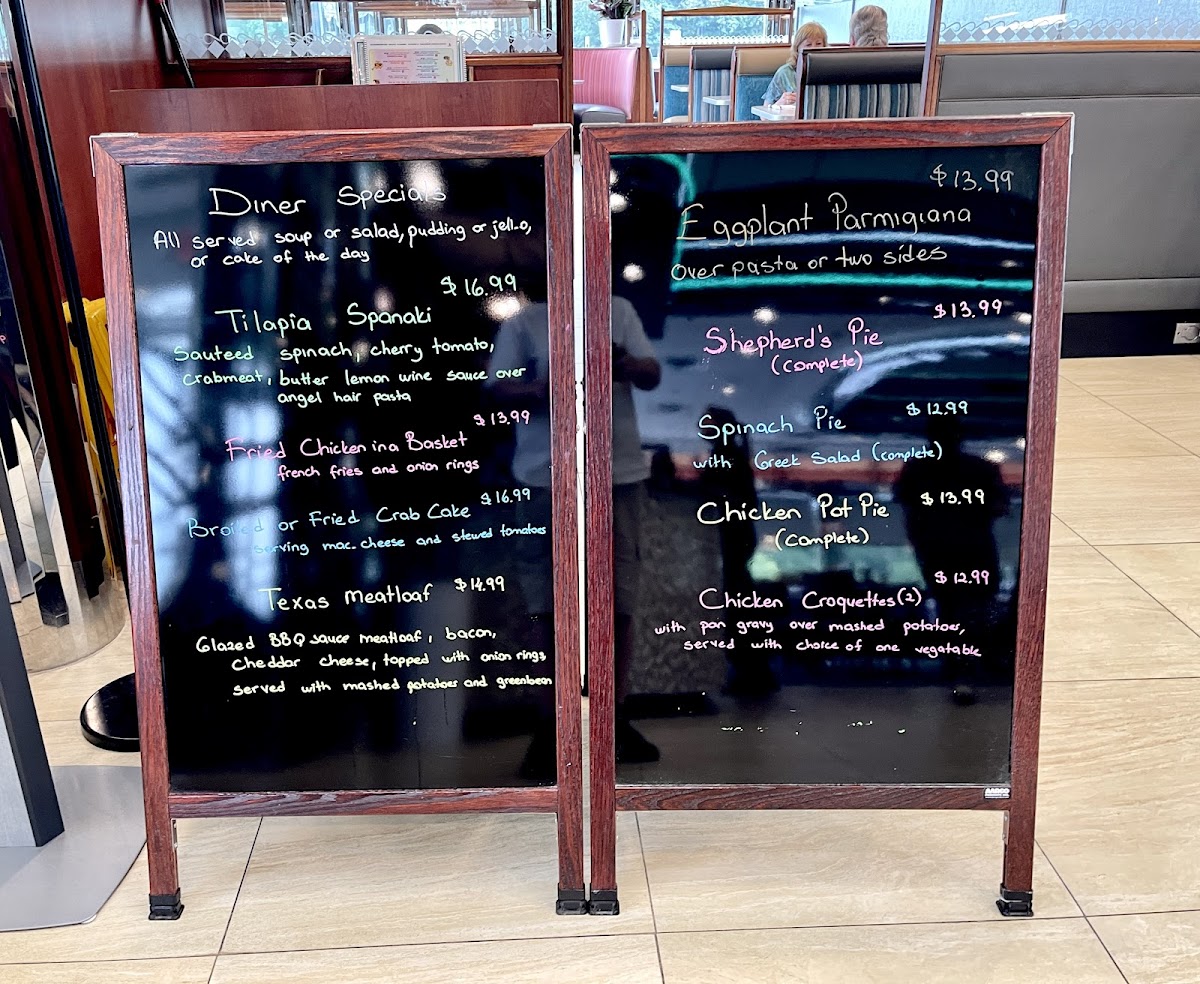 Diner Specials
All served soup or salad, pudding or jello,
or cake of the day
$16.99
Tilapia Spanaki
Sauteed spinach, cherry tomato,
crabmeat, butter lemon wine sauce over
angel hair pasta
$13.99
Fried Chicken in a Basket
french fries and onion rings
$16.99
Broiled or Fried Crab Cake
serving mac. cheese and stewed tomatoes
Texas meatloaf $14.99
Glazed BBQ sauce meatloaf, bacon,
Cheddar cheese, topped with onion rings
served with mashed potatoes and greenbean
$13.99
Eggplant Parmigiana
over pasta or two sides
$13.99
Shepherd's Pie
(complete)
$12.99
Spinach Pie
with Greek Salad (complete)
Chicken Pot Pie $13.99
(complete)
$12.99
Chicken Croquettes (2)
with pan gravy over mashed potatoes,
served with choice of one vegatable
AARCO